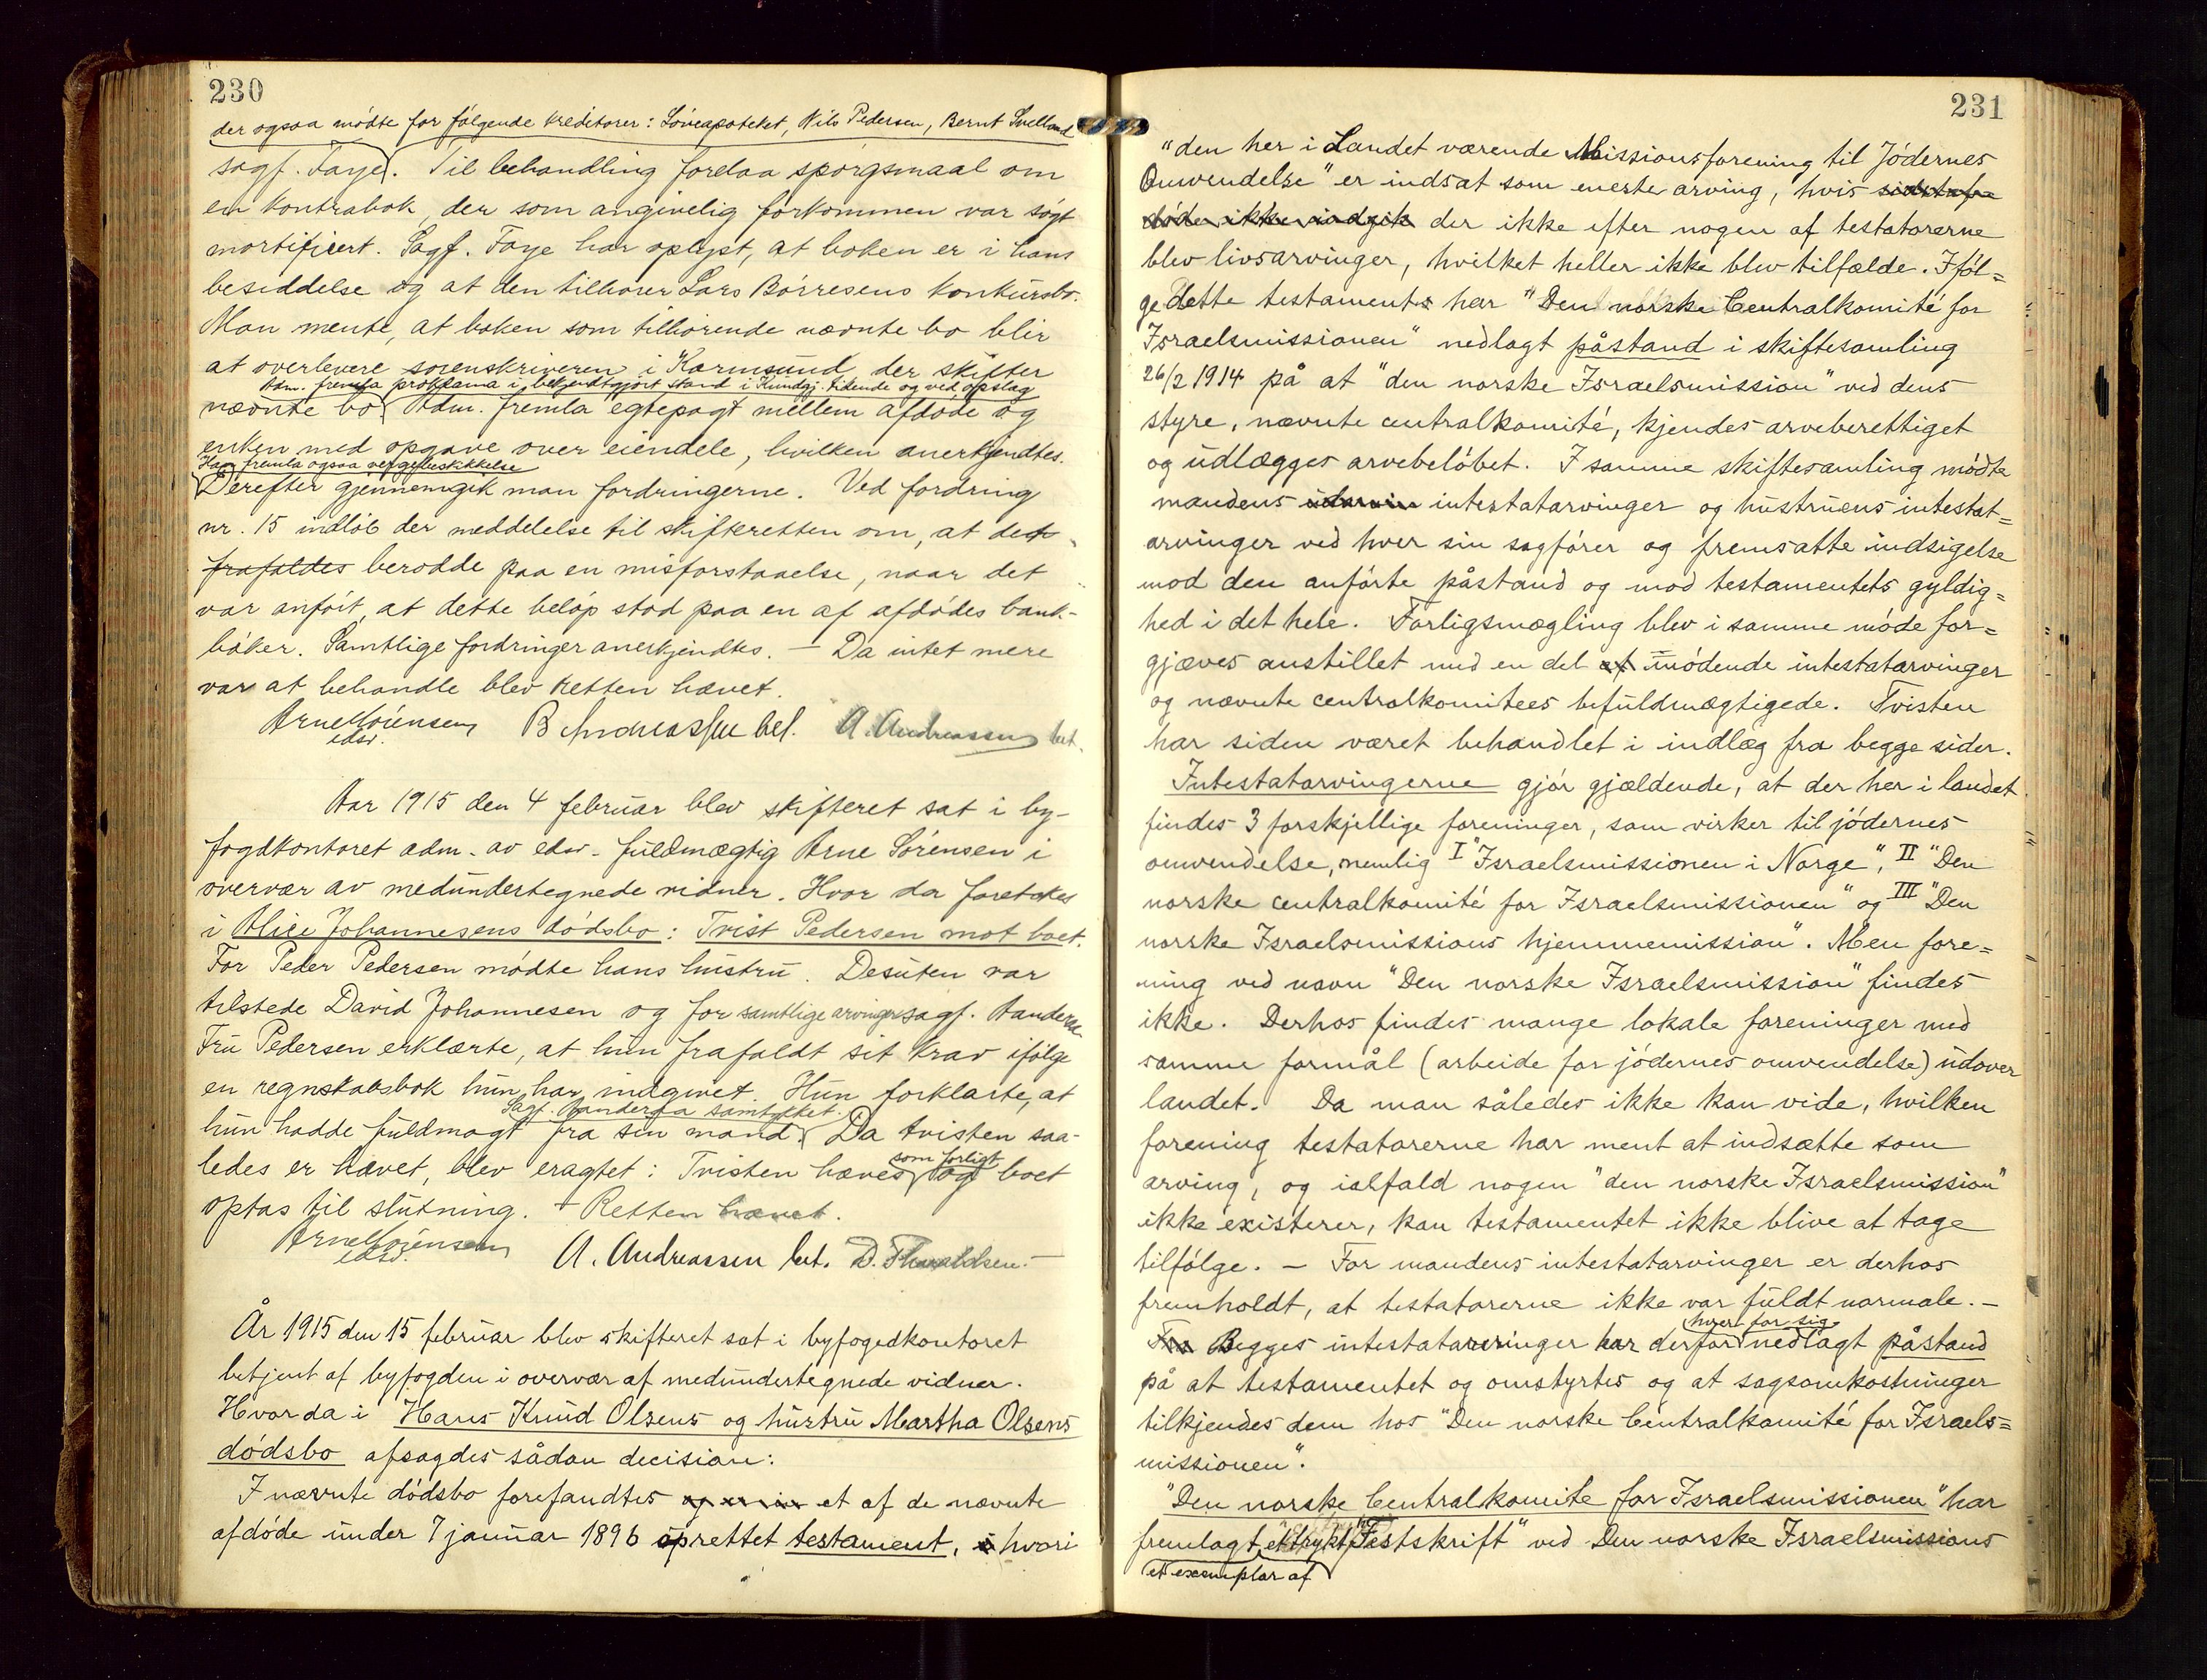 230
der ogsaa mødte for følgende kreditorer: Løveapoteket, Nils Pedersen, Bernt Svelland
sagf. Faye. Til behandling forelaa spørgsmaal om
en kontrabok, der som angivelig forkommen var søgt
mortificert. Sagf. Faye har oplyst, at boken er i hans
besiddelse og at den tilhører Lars Børresens konkursbo.
Man mente, at boken som tilhørende nævnte bo blir
at overlevere sorenskriveren i Karmsund, der skifter
Adm. fremla proklama i bekjendtgjort stand i Kundgj. tidende og ved opslag
nævnte bo. Adm. fremla egtepagt mellem afdøde og
enken med opgave over eiendele, hvilken anerkjendtes.
Han fremla ogsaa vergebeskikkelse
Derefter gjennemgik man fordringerne. Ved fordring
nr. 15 indløb der meddelelse til skifteretten om, at det
frafaldes berodde paa en misforstaaelse, naar det
var anført, at dette beløp stod paa en af afdødes bank-
bøker. Samtlige fordringer anerkjendtes. — Da intet mere
var at behandle blev retten hævet.
Arne Sørensen B. Andreassen bet. A. Andreassen bet.
edsv.
Aar 1915 den 4 februar blev skifteret sat i by-
fogdkontoret adm. av edsv. fuldmægtig Arne Sørensen i
overvær av medundertegnede vidner. Hvor da foretokes
i Alice Johannesens dødsbo: Tvist Pedersen mot boet.
For Peder Pedersen mødte hans hustru. Desuten var
tilstede David Johannesen og for samtlige arvinger sagf. Aanderaa
Fru Pedersen erklærte, at hun frafaldt sit krav ifølge
en regnskabsbok hun har indgivet. Hun forklarte, at
Sagf. Aanderaa samtykket.
hun hadde fuldmagt fra sin mand. Da tvisten saa-
ledes er hævet, blev eragtet: Tvisten hæves som forligt og boet
optas til slutning. — Retten hævet.
Arne Sørensen A. Andreassen bet. D. Thoraldsen.
edsv.
År 1915 den 15 februar blev skifteret sat i byfogedkontoret
betjent af byfogden i overvær af medundertegnede vidner.
Hvor da i Hans Knud Olsens og hustru Martha Olsens
dødsbo afsagdes sådan decision:
I nævnte dødsbo forefandtes et af de nævnte
afdøde under 7 januar 1896 oprettet testament, hvori
231
"den her i Landet værende Missionsforening til Jødernes
Omvendelse" er indsat som eneste arving, hvis sidstafdøde
ikke indgik der ikke efter nogen af testatorerne
blev livsarvinger, hvilket heller ikke blev tilfælde. Iføl=
ge dette testament har "Den norske Centralkomité for
Israelsmissionen" nedlagt påstand i skiftesamling
26/2 1914 på at "den norske Israelsmission" ved dens
styre, nævnte centralkomité, kjendes arveberettiget
og udlægges arvebeløbet. I samme skiftesamling mødte
mandens intestatarvinger og hustruens intestat=
arvinger ved hver sin sagfører og fremsatte indsigelse
mod den anførte påstand og mod testamentets gyldig=
hed i det hele. Forligsmægling blev i samme møde for=
gjæves anstillet med en del af mødende intestatarvinger
og nævnte centralkomitees befuldmægtigede. Tvisten
har siden været behandlet i indlæg fra begge sider.
Intestatarvingerne gjør gjældende, at der her i landet
findes 3 forskjellige foreninger, som virker til jødernes
omvendelse, nemlig I "Israelsmissionen i Norge", II "Den
norske centralkomité for Israelsmissionen" og III "Den
norske Israelsmissions hjemmemission". Men fore=
ning ved navn "Den norske Israelsmission" findes
ikke. Derhos findes mange lokale foreninger med
samme formål (arbeide for jødernes omvendelse) udover
landet. Da man således ikke kan vide, hvilken
forening testatorerne har ment at indsætte som
arving, og ialfald nogen "den norske Israelsmission"
ikke existerer, kan testamentet ikke blive at tage
tilfølge. — For mandens intestatarvinger er derhos
fremholdt, at testatorerne ikke var fuldt normale. —
Begges intestatarvinger har derfor hver for sig nedlagt påstand
på at testamentet og omstyrtes og at sagsomkostninger
tilkjendes dem hos "Den norske Centralkomité for Israels=
missionen".
"Den norske Centralkomite for Israelsmissionen" har
fremlagt et trykt "Festskrift" ved Den norske Israelsmissions
et exemplar af